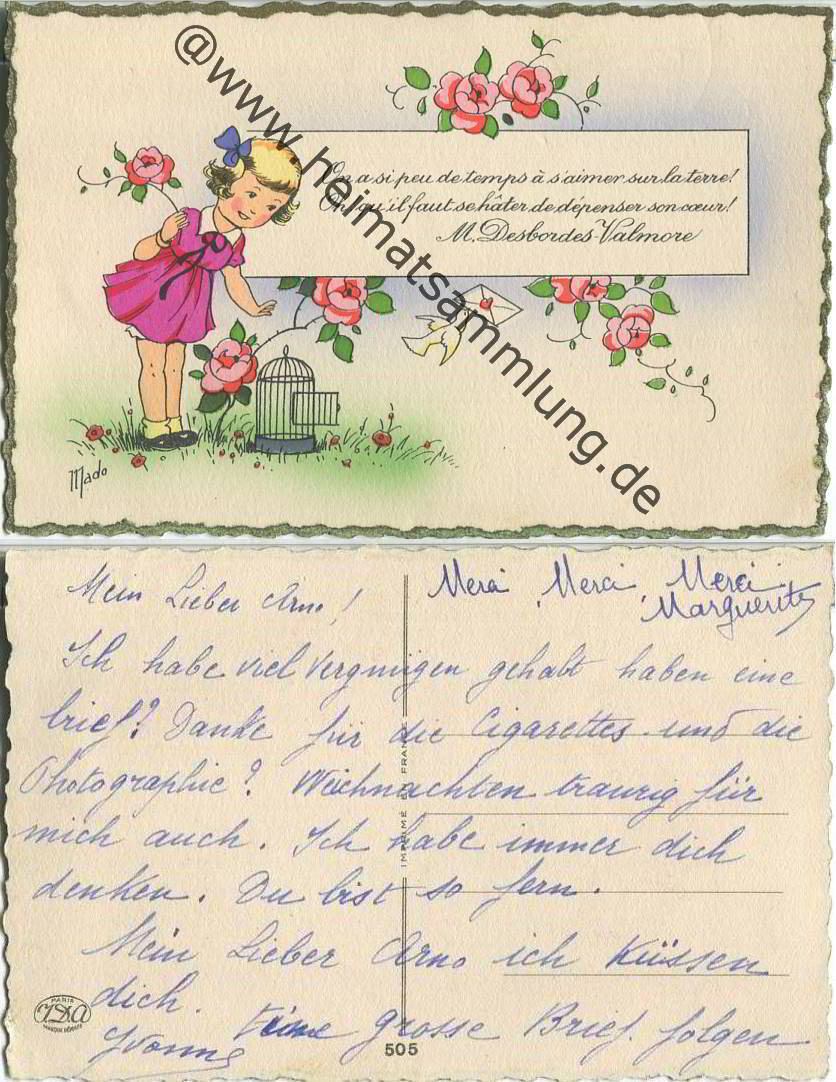 @www.heimatsammlung.de
On a si peu de temps à s'aimer sur la terre!
Oh! qu'il faut se hâter de dépenser son cœur!
M. Desbordes Valmore
Mado
Merci Merci Merci
Marguerite
Mein Lieber Arno!
Ich habe viel vergnügen gehabt haben eine
brief? Danke für die Cigarettes und die
Photographie? Weihnachten traurig für
mich auch. Ich habe immer dich
denken. Du bist so fern.
Mein Lieber Arno ich Küssen
dich. eine grosse Brief folgen
Yvonne
IMPRIMÉ EN FRANCE
PARIS
IDA
505